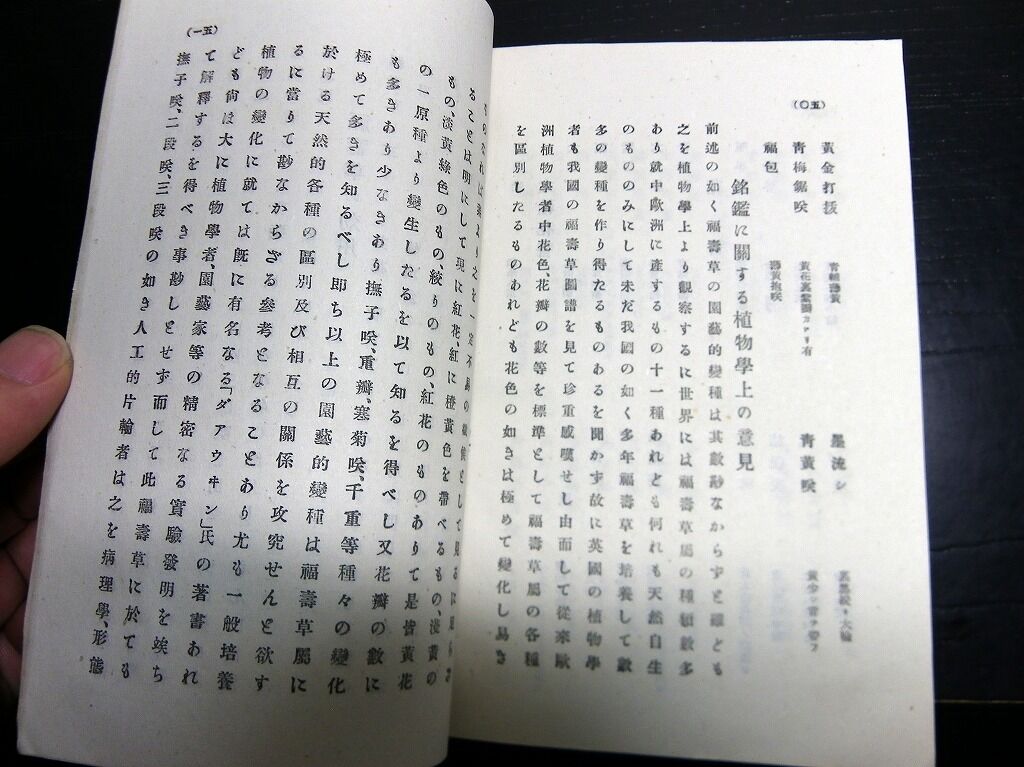 (五〇)
黃金打拔
靑軸勝黃
墨流シ
裏墨絞、大輪
靑梅鋸咲
黃花裏紫圖カヽリ有
靑黃咲
黃少シ靑ヲ帶フ
福包
勝黃抱咲
銘鑑に關する植物學上の意見
前述の如く福壽草の園藝的變種は其數尠なからずと雖ども
之を植物學上より觀察するに世界には福壽草屬の種類數多
あり就中歐洲に產するもの十一種あれども何れも天然自生
のもののみにして未だ我國の如く多年福壽草を培養して數
多の變種を作り得たるものあるを聞かず故に英國の植物學
者も我國の福壽草圖譜を見て珍重感嘆せし由而して從來歐
洲植物學者中花色、花瓣の數等を標準として福壽草屬の各種
を區別したるものあれども花色の如きは極めて變化し易き
(五一)
ものなれば素より之を一定不易の
ることは明にして現に紅花、紅に橙黃色を帶べるもの、淡黃の
もの、淡黃綠色のもの、絞りのもの、紅花のものありて是皆黃花
の一原種より變生したるを以て知るを得べし又花瓣の數に
も多きあり少なきあり撫子咲、重瓣、寒菊咲、千重等種々の變化
極めて多きを知るべし卽ち以上の園藝的變種は福壽草屬に
於ける天然的各種の區別及び相互の關係を攻究せんと欲す
るに當りて尠なからざる參考となることあり尤も一般培養
植物の變化に就ては旣に有名なる「ダアウヰン」氏の著書あれ
ども尙ほ大に植物學者、園藝家等の精密なる實驗發明を竢ち
て解釋するを得べき事尠しとせず而して此福壽草に於ても
撫子咲、二段咲、三段咲の如き人工的片輪者は之を病理學、形態